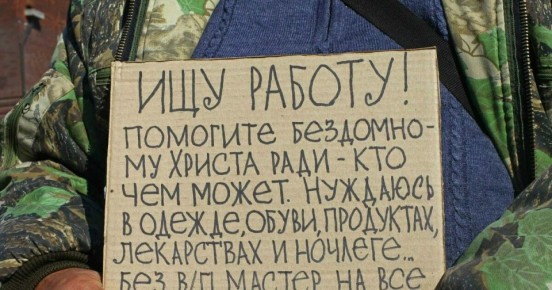 ИЩУ РАБОТУ!
ПОМОГИТЕ БЕЗДОМНО-
МУ ХРИСТА РАДИ - КТО
ЧЕМ МОЖЕТ. НУЖДАЮСЬ
В ОДЕЖДЕ, ОБУВИ, ПРОДУКТАХ,
ЛЕКАРСТВАХ И НОЧЛЕГЕ...
БЕЗ В/П МАСТЕР НА ВСЕ